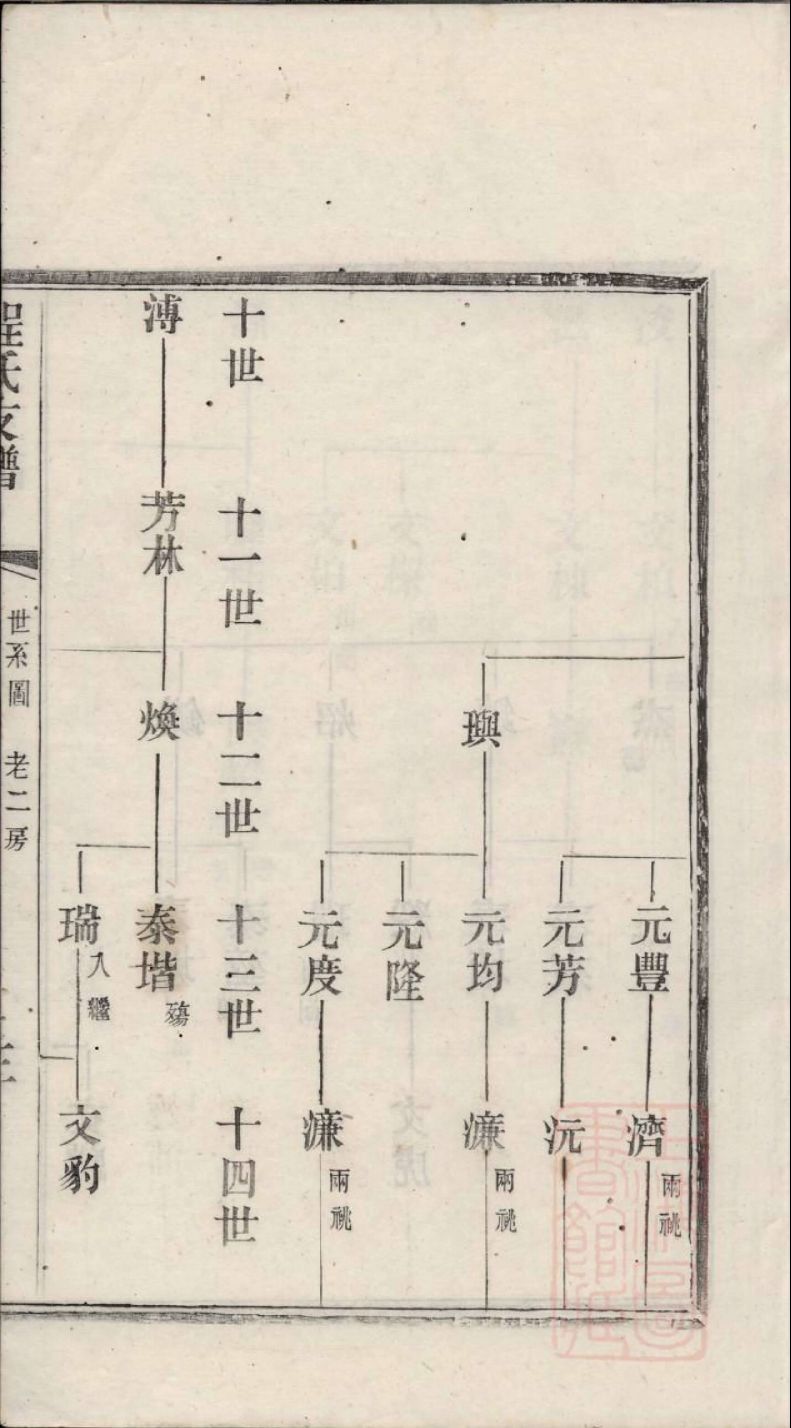 元豐
濟 兩祧
元芳
沅
璵
元均
濂 兩祧
元隆
元度
濂 兩祧
十世 十一世 十二世 十三世 十四世
溥
芳林
煥
泰堦 殤
瑞 入繼
文豹
程氏支譜
世系圖 老二房